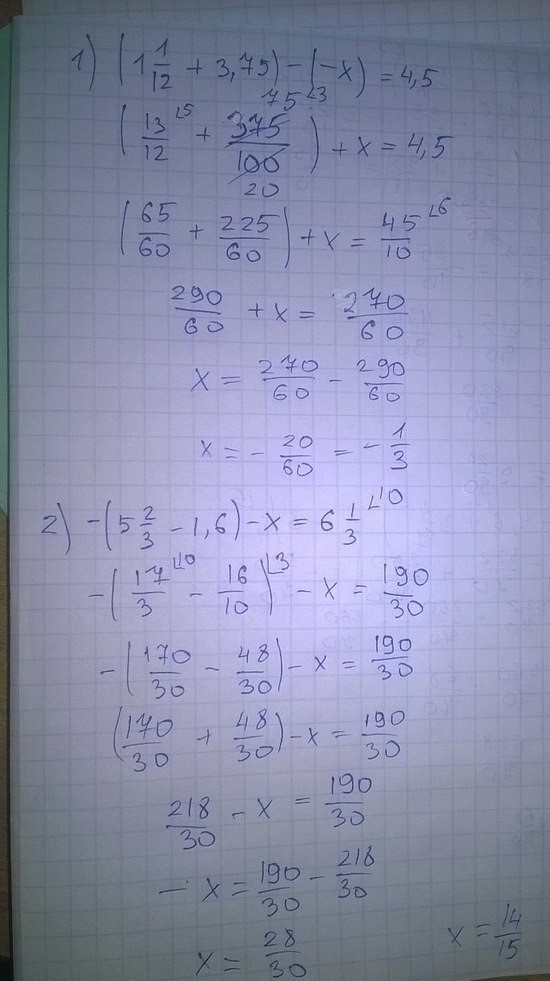 1) (1 1/12 + 3,75) - (-x) = 4,5
(13/12 ∟5 + 375/100 75/20 ∟3) + x = 4,5
(65/60 + 225/60) + x = 45/10 ∟6
290/60 + x = 270/60
x = 270/60 - 290/60
x = - 20/60 = - 1/3
2) -(5 2/3 - 1,6) - x = 6 1/3 ∟10
-(17/3 ∟10 - 16/10)∟3 - x = 190/30
-(170/30 - 48/30) - x = 190/30
(170/30 + 48/30) - x = 190/30
218/30 - x = 190/30
- x = 190/30 - 218/30
x = 28/30 x = 14/15